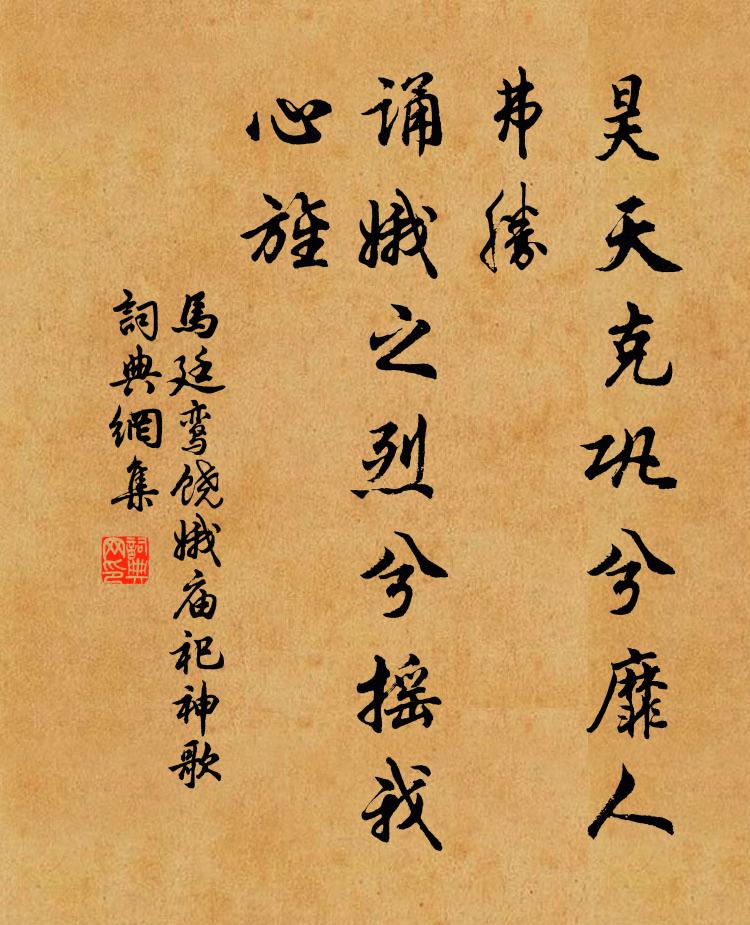 昊天克巩兮靡人
弗勝
诵娥之烈兮摇我
心旌
馬廷鸾饶娥庙祀神歌
詞典網集
詞典
网印